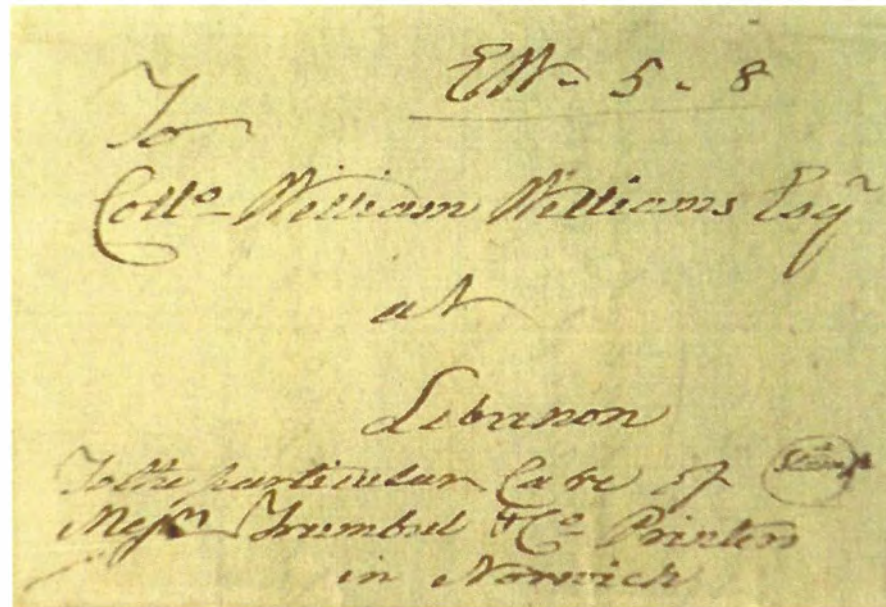 EW- 5 - 8
To
Collo- William Williams Esqr
at
Lebanon
To the particular Care of
Messrs Trumbul & Co- Printers
in Norwich